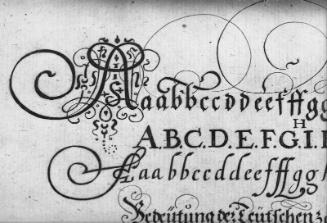 Aaabbccddeefffgg
H
A.B.C.D.E.F.G.I.
Aaabbccddeefffgg
Bedeütung der Teütschen